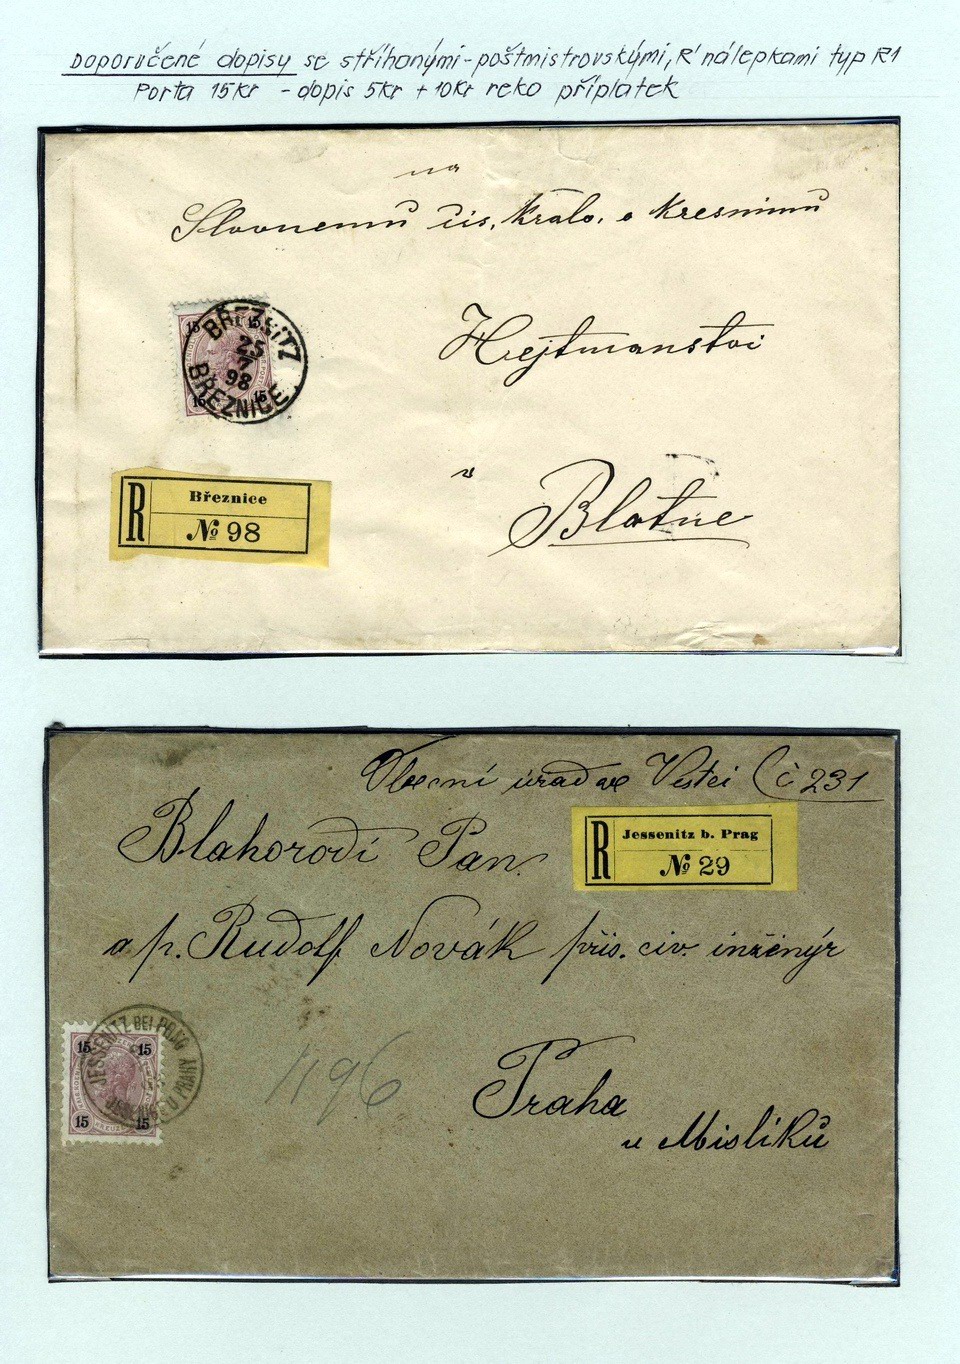 Doporučené dopisy se stříhanými-poštmistrovskými, R nálepkami typ R1
Porta 15kr - dopis 5kr + 10kr reko příplatek
na
Slovnemů
Hejtmanstvi
v
Blatne
15 15
15 15
BŘEZNITZ
25
7
98
BŘEZNICE
R Březnice
№ 98
Obecní úřad ve Vestci Č 231
Blahorodí Pan.
R Jessenitz b. Prag
№ 29
a p. Rudolf Novák přis. civ. inženýr
15 15
15 15
JESSENITZ BEI PRAG
JESENICE U PRAHY
1196
Praha
u Mislíků